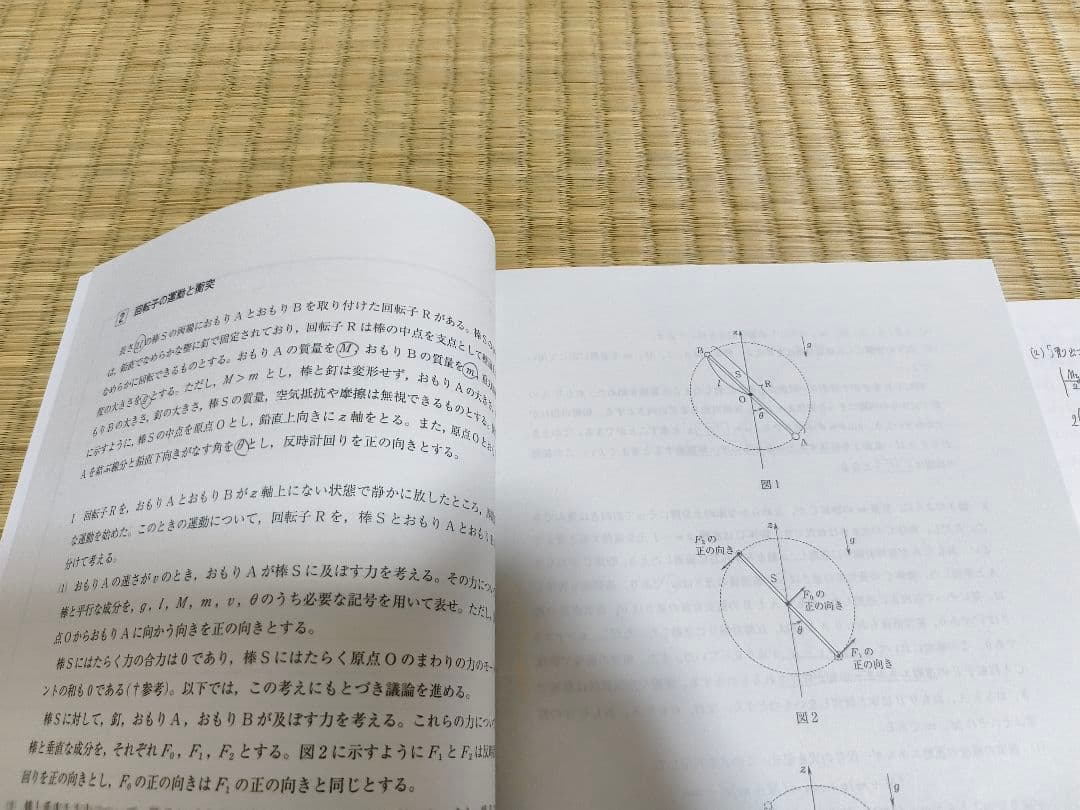 2 回転子の運動と衝突
長さ2lの棒Sの両端におもりAとおもりBを取り付けた回転子Rがある。棒Sの
は,鉛直でなめらかな壁に釘で固定されており,回転子Rは棒の中点を支点として
なめらかに回転できるものとする。おもりAの質量をM,おもりBの質量をm,
度の大きさをgとする。ただし,M>mとし,棒と釘は変形せず,おもりAの大きさ,
もりBの大きさ,釘の大きさ,棒Sの質量,空気抵抗や摩擦は無視できるものとする。
に示すように,棒Sの中点を原点Oとし,鉛直上向きにz軸をとる。また,原点Oと
Aを結ぶ線分と鉛直下向きがなす角をθとし,反時計回りを正の向きとする。
I 回転子Rを,おもりAとおもりBがz軸上にない状態で静かに放したところ,
な運動を始めた。このときの運動について,回転子Rを,棒SとおもりAとおもり
分けて考える。
(1) おもりAの速さがvのとき,おもりAが棒Sに及ぼす力を考える。その力につ
棒と平行な成分を,g,l,M,m,v,θのうち必要な記号を用いて表せ。ただし,
点OからおもりAに向かう向きを正の向きとする。
棒Sにはたらく力の合力は0であり,棒Sにはたらく原点Oのまわりの力のモー
ントの和も0である(†参考)。以下では,この考えにもとづき議論を進める。
棒Sに対して,釘,おもりA,おもりBが及ぼす力を考える。これらの力につい
棒と垂直な成分を,それぞれF0,F1,F2とする。図2に示すようにF1とF2は反時
回りを正の向きとし,F0の正の向きはF1の正の向きと同じとする。
z
g
B
S
R
l
O
θ
l
A
図1
z
g
F2の
正の向き
S
F0の
正の向き
θ
F1の
正の向き
図2
z
g
(2)